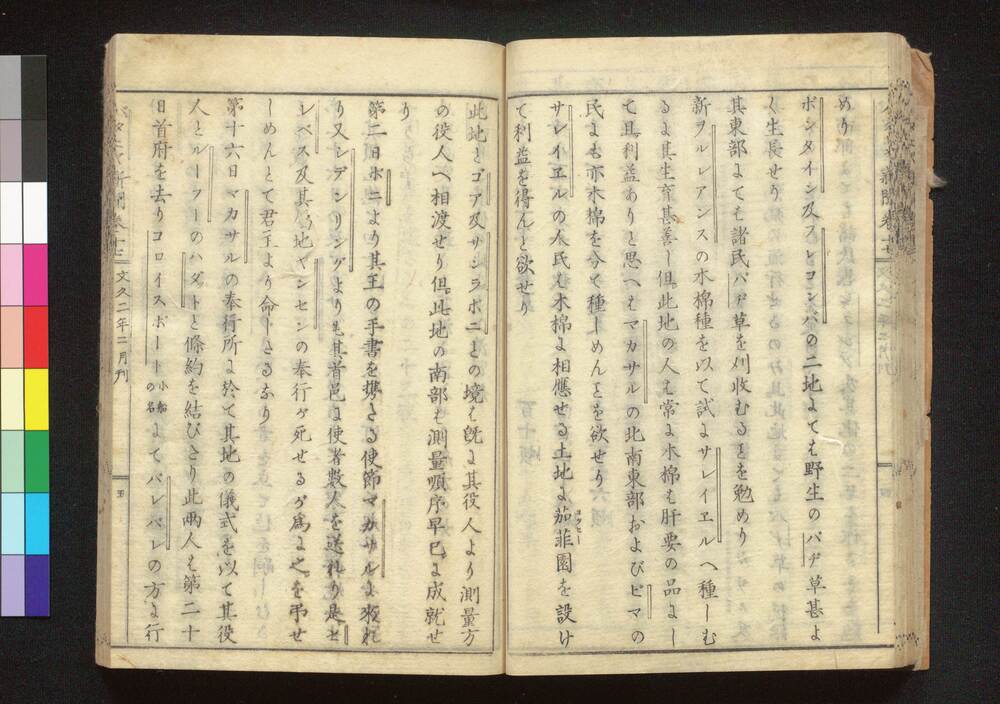 めり
ボンタイン及スピコンバの二地よても野生のパヂ草甚よ
く生長せり
其東部よても諸民パヂ草を刈收むるとを勉めり
新ヲルレアンスの木棉種を以て試よサレイヱルへ種しむ
るよ其生育甚善し但此地の人も常よ木棉も肝要の品よし
て且利益ありと思へもマカサルの北南東部およびビマの
民よも亦木棉を分て種しめんとを欲せり
サレイヱルの人民も木棉よ相應せる土地よ茄菲園を設け
コッヒー
て利益を得んと欲せり
此地とゴア及サンラボニとの境も旣よ其役人より測量方
の役人へ相渡せり但此地の南部も測量順序早已よ成就せ
り
第二日ボニより其王の手書を携さる使節マカサルよ來れ
り又シデンリングよりも其首邑よ使者數人を送れり是セ
レベス及其地ヤンセンの奉行が死せるが爲よ之を弔せ
しめんとて君王より命しさるなり
第十六日マカサルの奉行所よ於て其地の儀式を以て其役
人とルーフーのハダトと條約を結びさり此兩人も第二十
日首府を去りコロイスボート小船の名よてパレパレの方よ行
文久二年二月刊
五